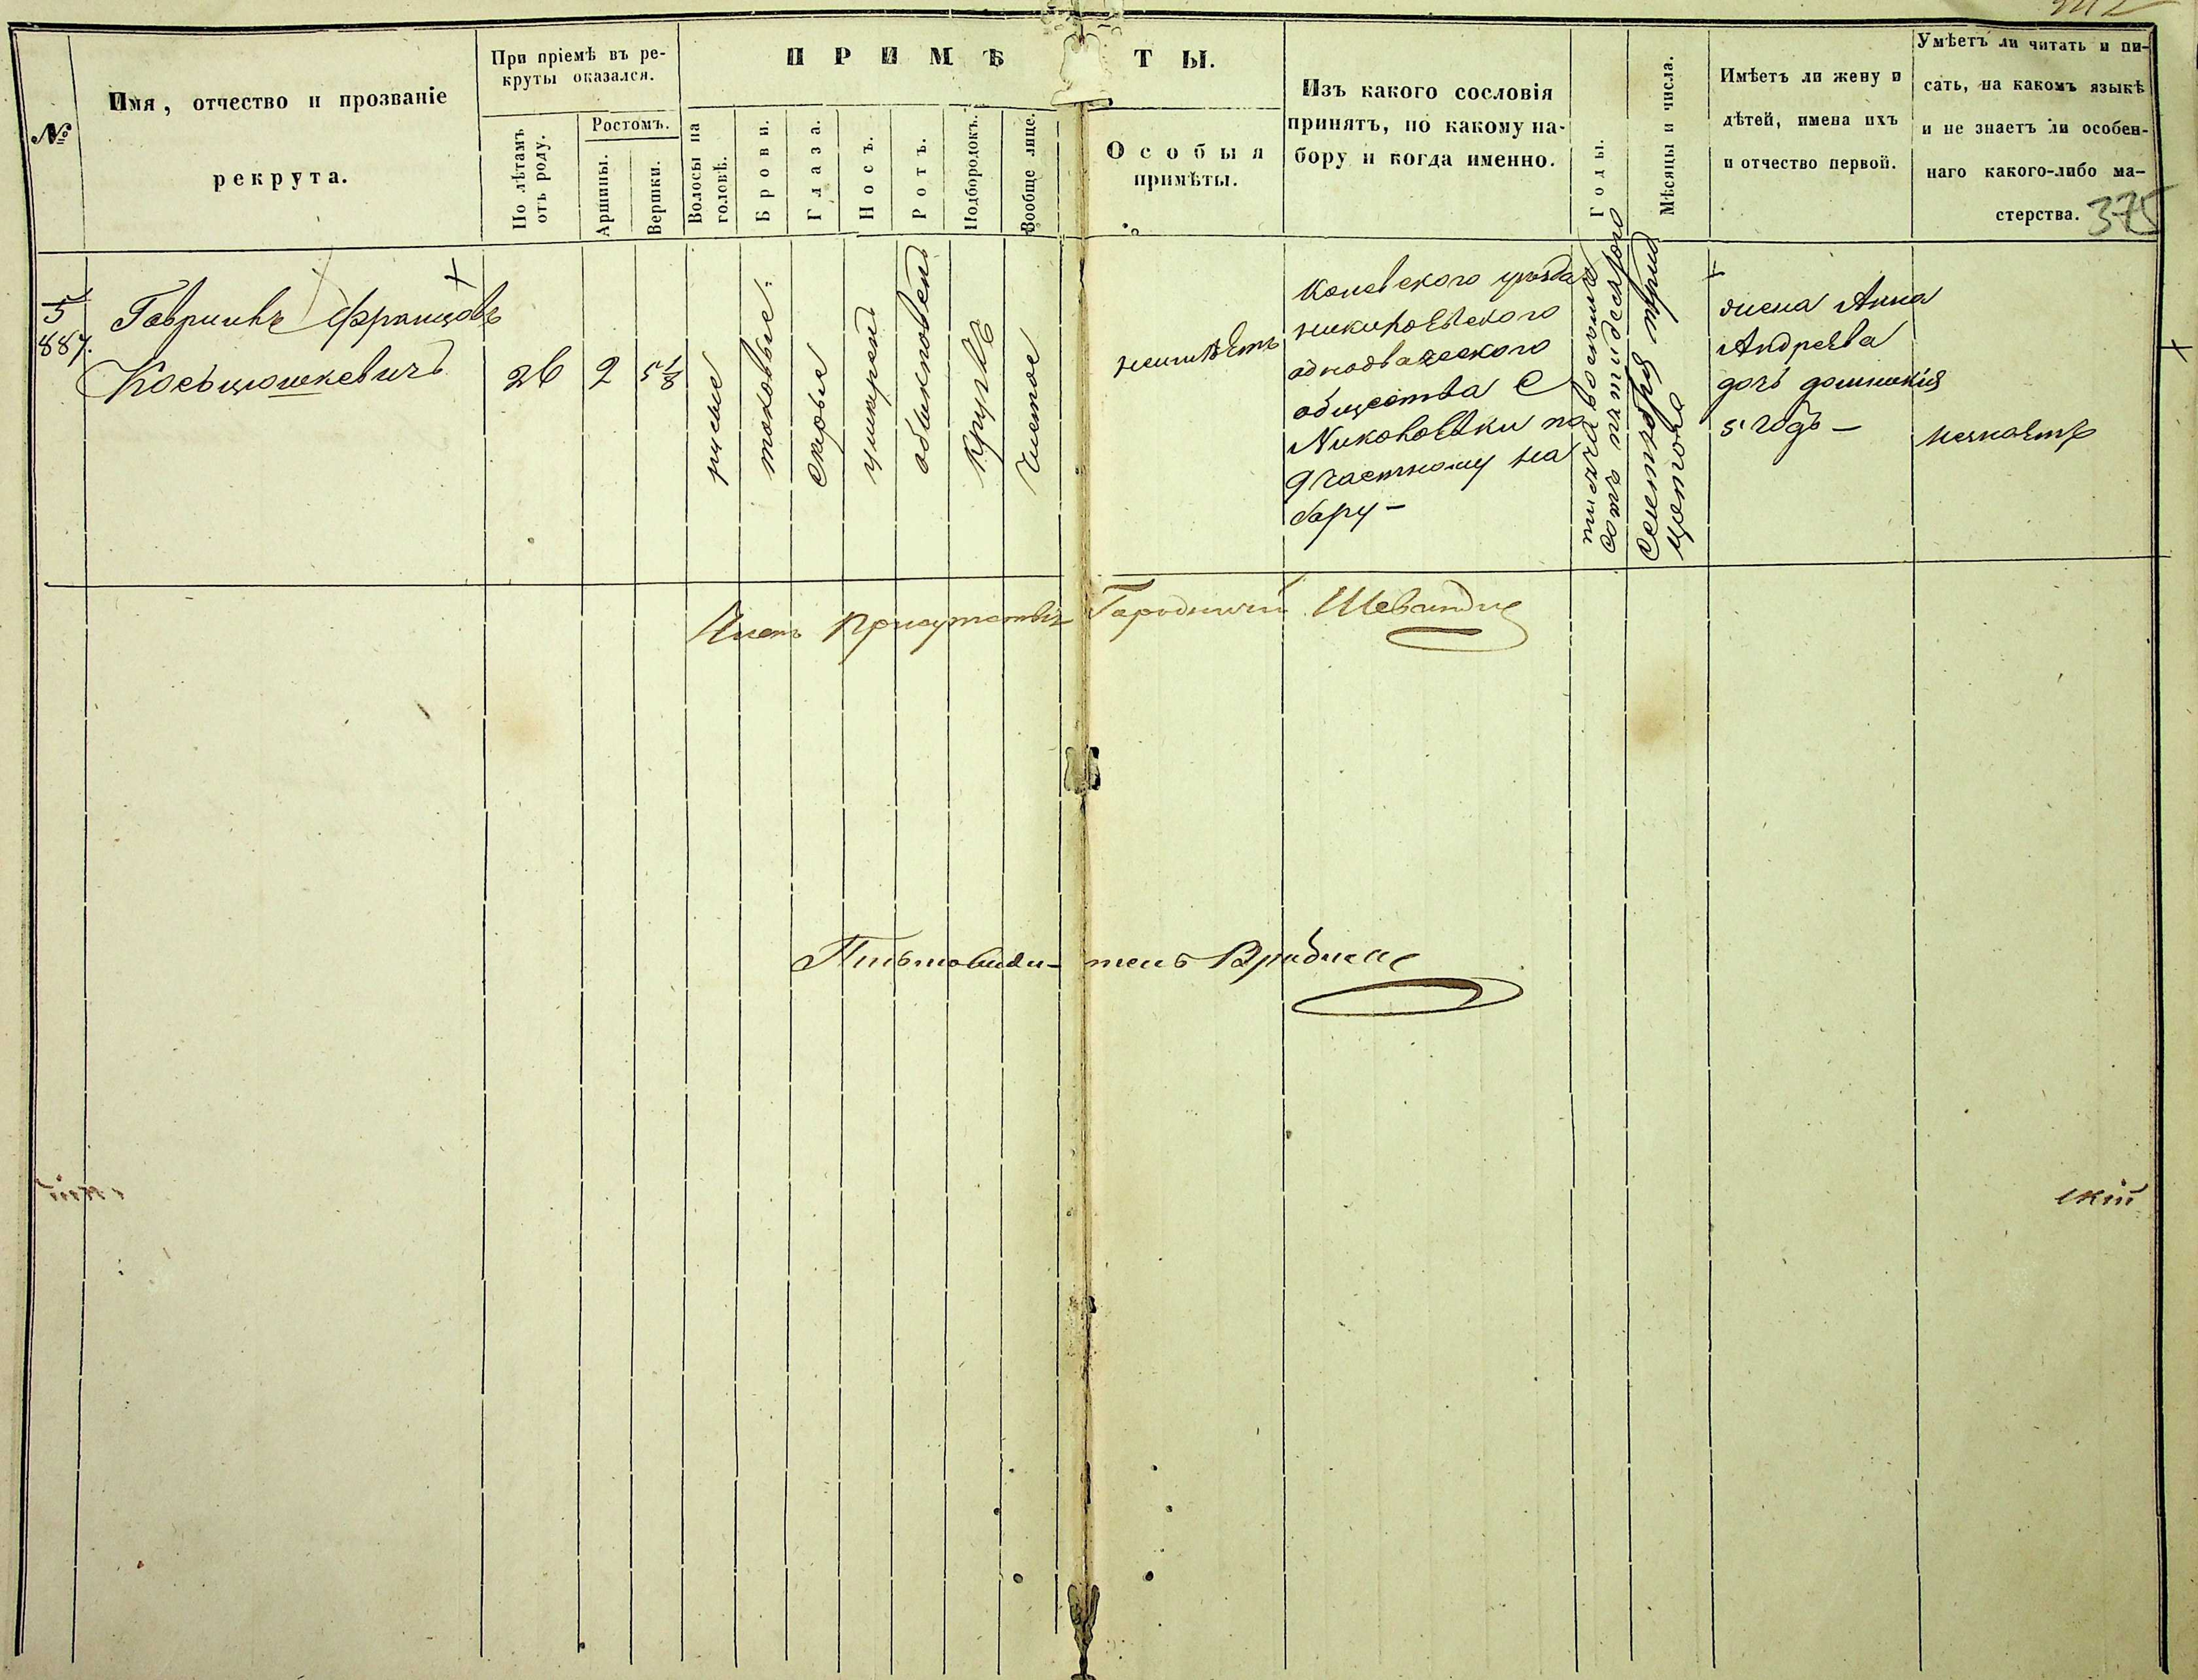 №
Имя, отчество и прозваніе
рекрута.
При пріемѣ въ ре-
круты оказался.
По лѣтамъ
отъ роду.
Ростомъ.
Аршины.
Вершки.
ПРИМѢТЫ.
Волосы на
головѣ.
Брови.
Глаза.
Носъ.
Ротъ.
Подбородокъ.
Вообще лице.
Особыя
примѣты.
Изъ какого сословія
принятъ, по какому на-
бору и когда именно.
Годы.
Мѣсяцы и числа.
Имѣетъ ли жену и
дѣтей, имена ихъ
и отчество первой.
Умѣетъ ли читать и пи-
сать, на какомъ языкѣ
и не знаетъ ли особен-
наго какого-либо ма-
стерства.
375
5
887.
Гаврiилъ Францовъ
Косьцюшкевичъ
26
2
5 1/8
русые
таковые
серые
умерен
обыкновен
круглъ
чистое
неимѣетъ
уѣзда
однодваческого
общества С
Николаевки по
9 частному на
бору —
тысяча восемь
сотъ пятидесятого
Сентября трид
жена Анна
Андреева
дочь
5 годъ —
незнаетъ
Присутствія Городничій
Письмоводитель
скій